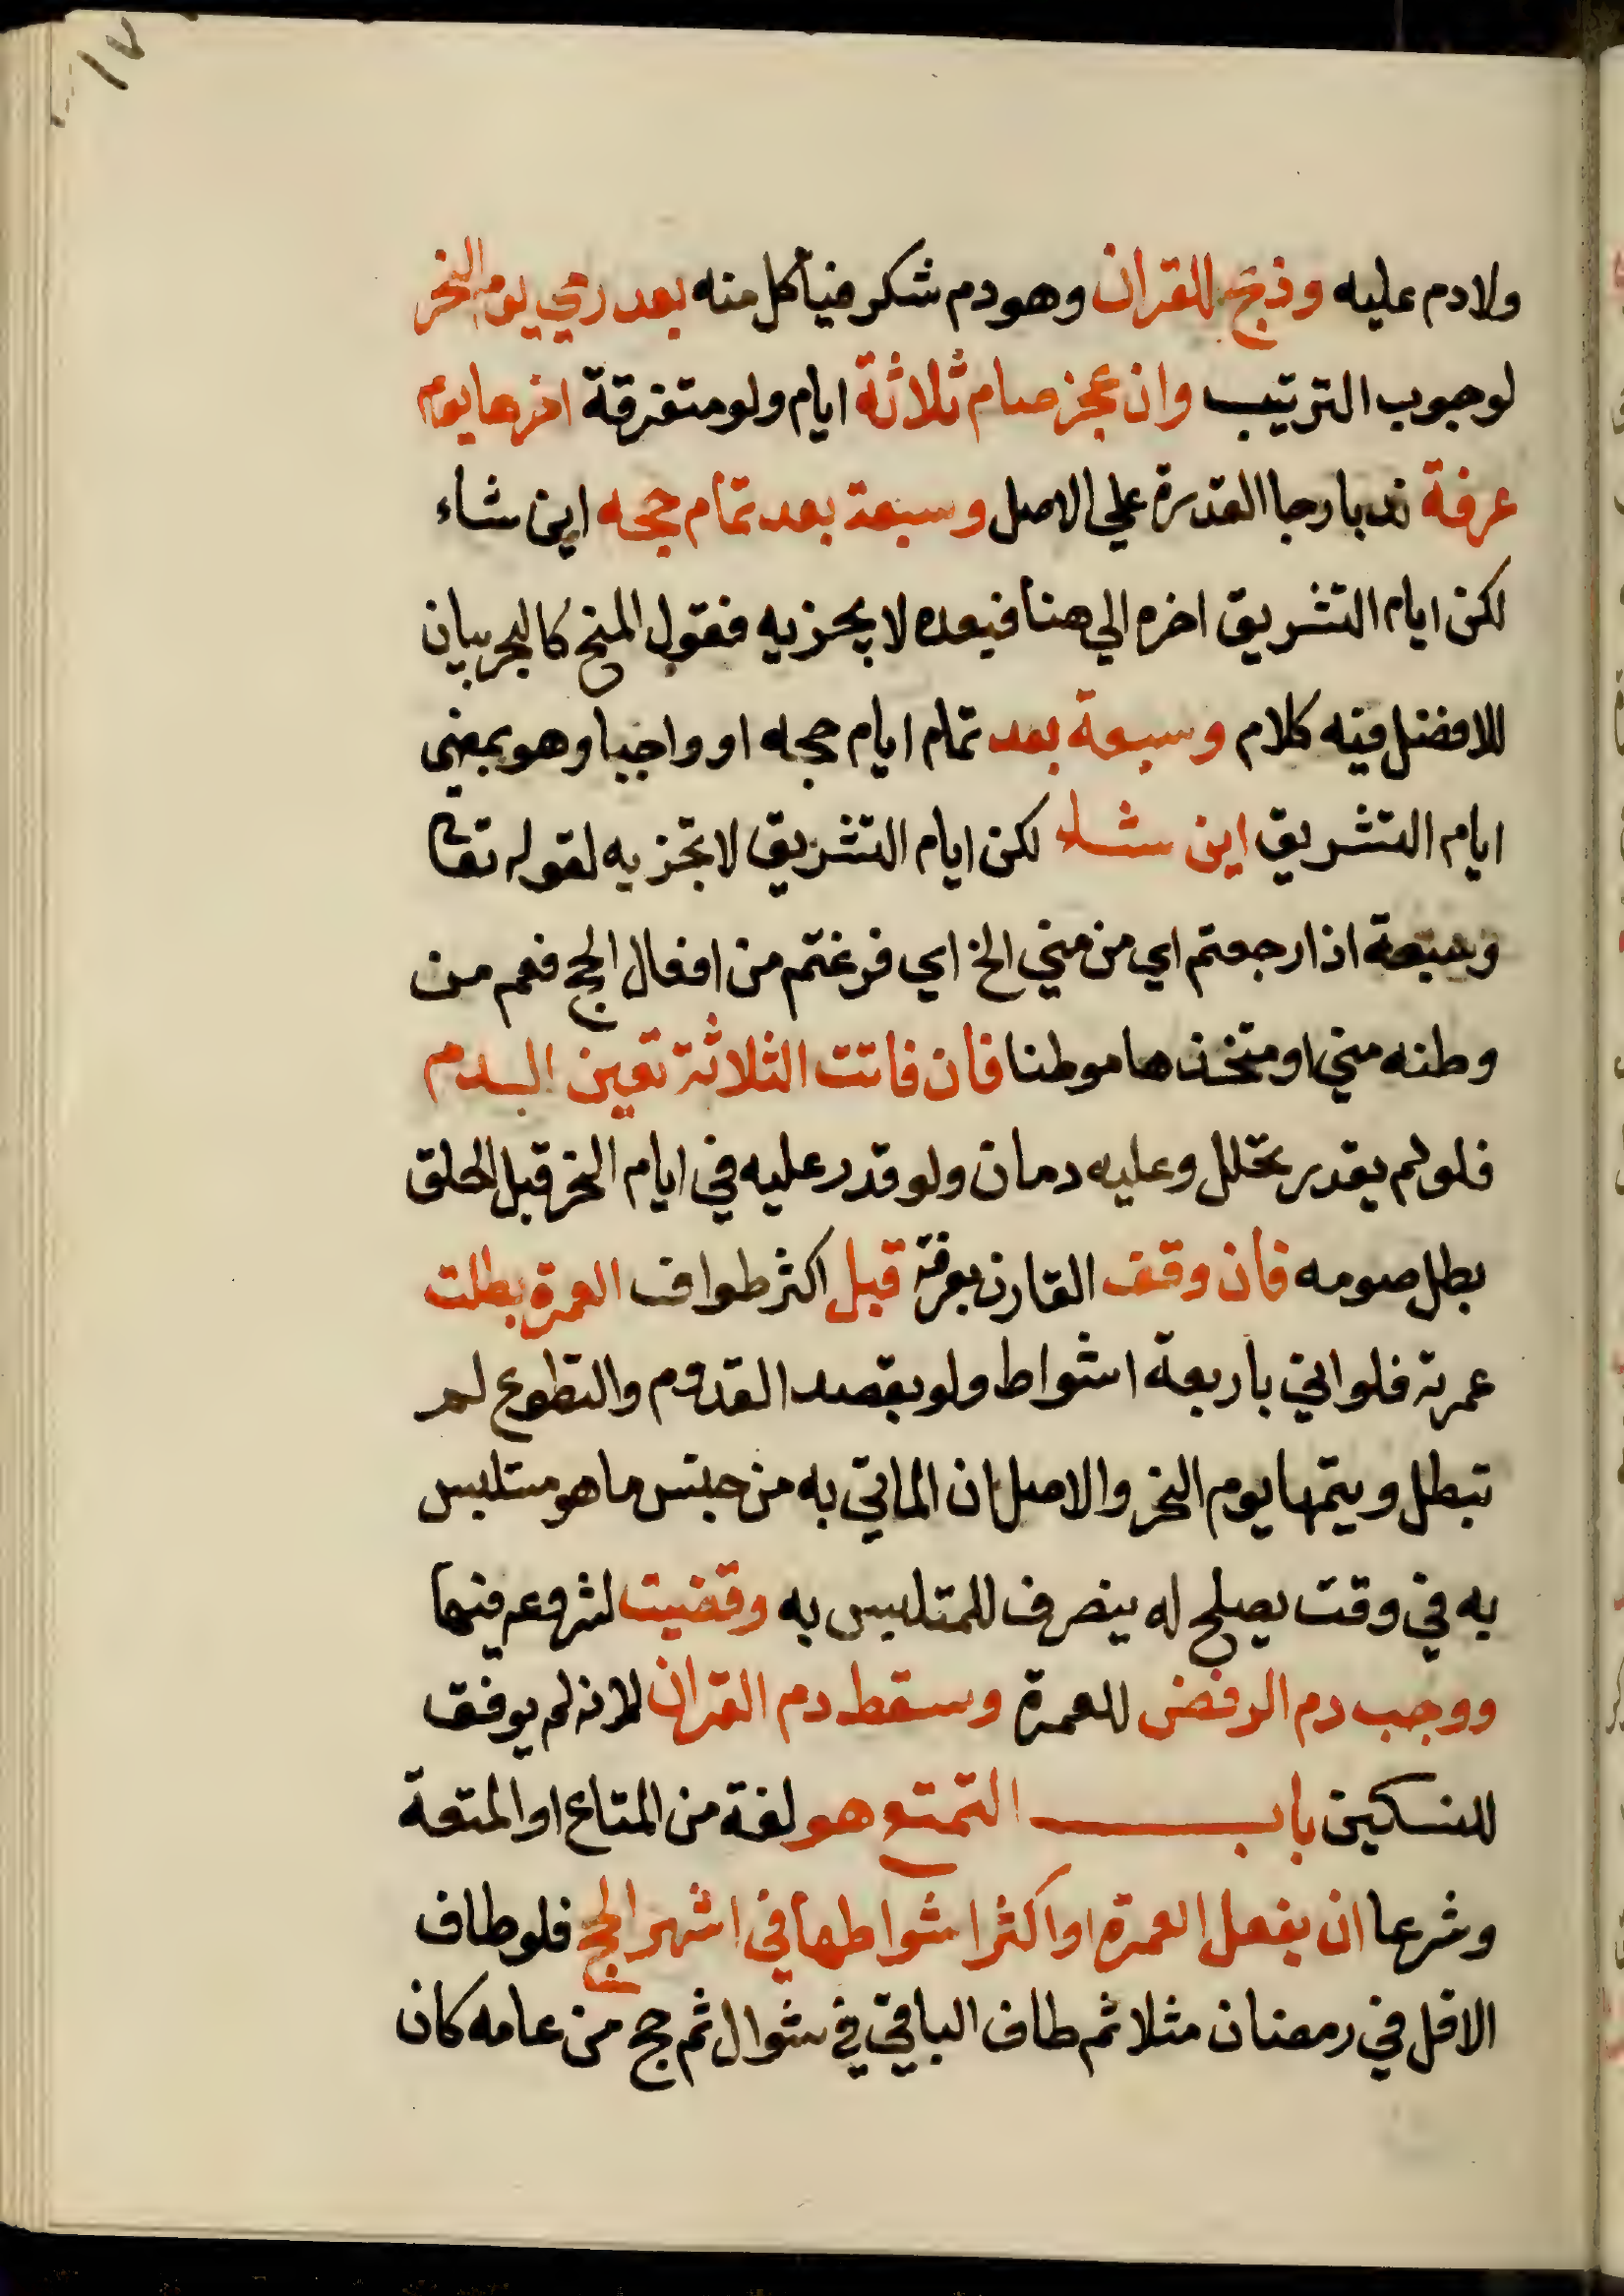 ١٧
ولا دم عليه وذبح للقران وهو دم شكر فيأكل منه بعد رمي يوم النحر
لوجوب الترتيب وان عجز صام ثلاثة ايام ولو متفرقة اخرها يوم
عرفة ندبا رجا القدرة علي الاصل وسبعة بعد تمام حجه اين شاء
لكن ايام التشريق اخره الي هنا فبعده لا يجزيه فقول المنح كالبحر بيان
للافضل فيه كلام وسبعة بعد تمام ايام حجه او واجبا وهو بمضي
ايام التشريق اين شاء لكن ايام التشريق لا تجزيه لقوله تعا
وسبعة اذا رجعتم اي من مني الخ اي فرغتم من افعال الحج فعم من
وطنه مني او متخذها موطنا فان فاتت الثلاثة تعين الدم
فلو لم يقدر تحلل وعليه دمان ولو قدر عليه في ايام النحر قبل الحلق
بطل صومه فان وقف القارن بعرفة قبل اكثر طواف العمرة بطلت
عمرته فلو اتي باربعة اشواط ولو بقصد القدوم والتطوع لم
تبطل ويتمها يوم النحر والاصل ان الماتي به من جنس ما هو متلبس
به في وقت يصلح له ينصرف للمتلبس به وقضيت لشروعه فيها
ووجب دم الرفض للعمرة وسقط دم القران لانه لم يوفق
للنسكين باب التمتع هو لغة من المتاع او المتعة
وشرعا ان يفعل العمرة او اكثر اشواطها في اشهر الحج فلو طاف
الاقل في رمضان مثلا ثم طاف الباقي في شوال ثم حج من عامه كان